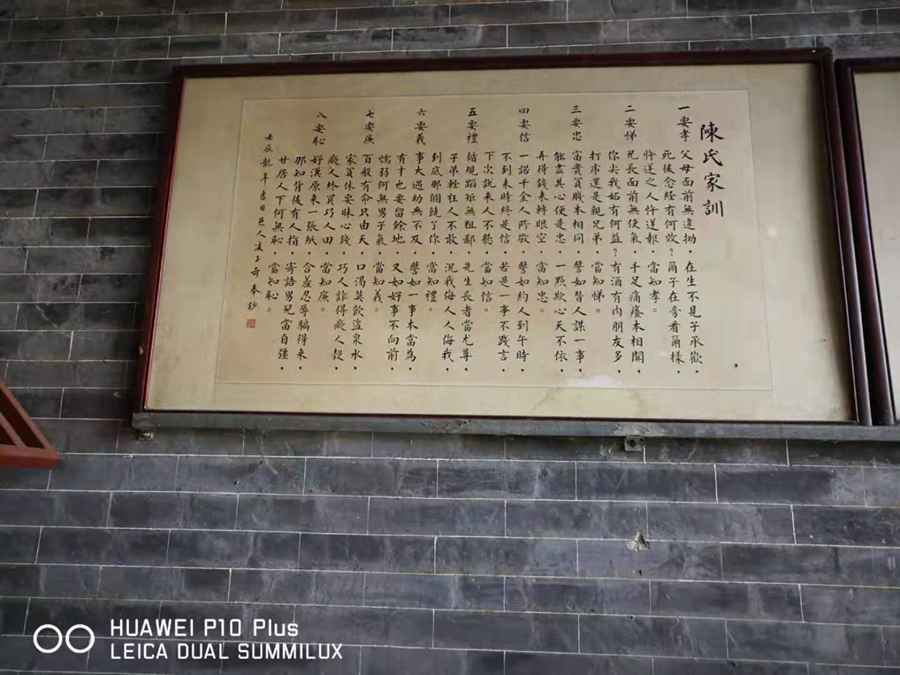 陳氏家訓
一要孝 父母面前無違拗，在生不見子承歡，
死後念經有何效？爾子在旁看爾樣，
忤逆之人忤逆報，當知孝。
二要悌 兄長面前無使氣，手足痛癢本相關，
你尖我妬有何益？有酒有肉朋友多，
打虎還是親兄弟，當知悌。
三要忠 富貴貧賤本相同，譬如替人謀一事，
能盡其心便是忠，一點欺心天不依，
弄得錢來轉眼空，當知忠。
四要信 一諾千金人所敬，譬如約人到午時，
不到未時終是信，若是一事不踐言，
下次說來人不聽，當知信。
五要禮 循規蹈矩無粗鄙，先生長者當尤尊，
子弟輕狂人不敢，況我侮人人侮我，
到底那個饒了你，當知禮。
六要義 事大過劫無不及，譬如一事本當為，
有才也要留餘地，又如好事不向前，
懦弱何無男子氣，當知義。
七要廉 百般有命只由天，口渴莫飲盜泉水，
家貧休要昧心錢，巧人詐得癡人，
癡人終買巧人田，當知廉。
八要恥 好漢原來一張紙，含羞忍辱騙得來，
那知背後有人指，寄語男兒當自強，
甘居人下何無恥，當知恥。
壬辰龍年 日邑人凌子奇奉鈔
HUAWEI P10 Plus
LEICA DUAL SUMMILUX